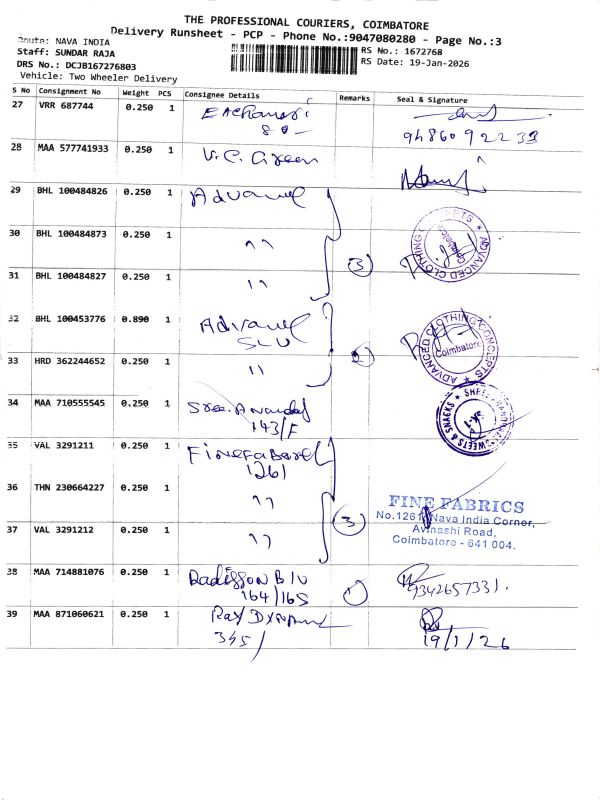 THE PROFESSIONAL COURIERS, COIMBATORE
Delivery Runsheet - PCP - Phone No.:9047080280 - Page No.:3
Route: NAVA INDIA
Staff: SUNDAR RAJA
DRS No.: DCJB167276803
Vehicle: Two Wheeler Delivery
RS No.: 1672768
RS Date: 19-Jan-2026
S No Consignment No Weight PCS Consignee Details Remarks Seal & Signature
27 VRR 687744 0.250 1
80
9486092239
28 MAA 577741933 0.250 1 V.C. Green
29 BHL 100484826 0.250 1 Advance
30 BHL 100484873 0.250 1 " (3) ADVANCED CLOTHING
31 BHL 100484827 0.250 1 "
32 BHL 100453776 0.890 1 Advance
SLU
ADVANCED CLOTHING CONCEPTS
Coimbatore
33 HRD 362244652 0.250 1 "
34 MAA 710555545 0.250 1 Sree. Anandas
143/F
SWEETS & SNACKS
35 VAL 3291211 0.250 1
1261
36 THN 230664227 0.250 1 " (3)
FINE FABRICS
No.1261, Nava India Corner,
Avinashi Road,
Coimbatore - 641 004.
37 VAL 3291212 0.250 1 "
38 MAA 714881076 0.250 1 Radisson Blu
164/165
(1) 9342657331.
39 MAA 871060621 0.250 1 Ray
345/
19/1/26